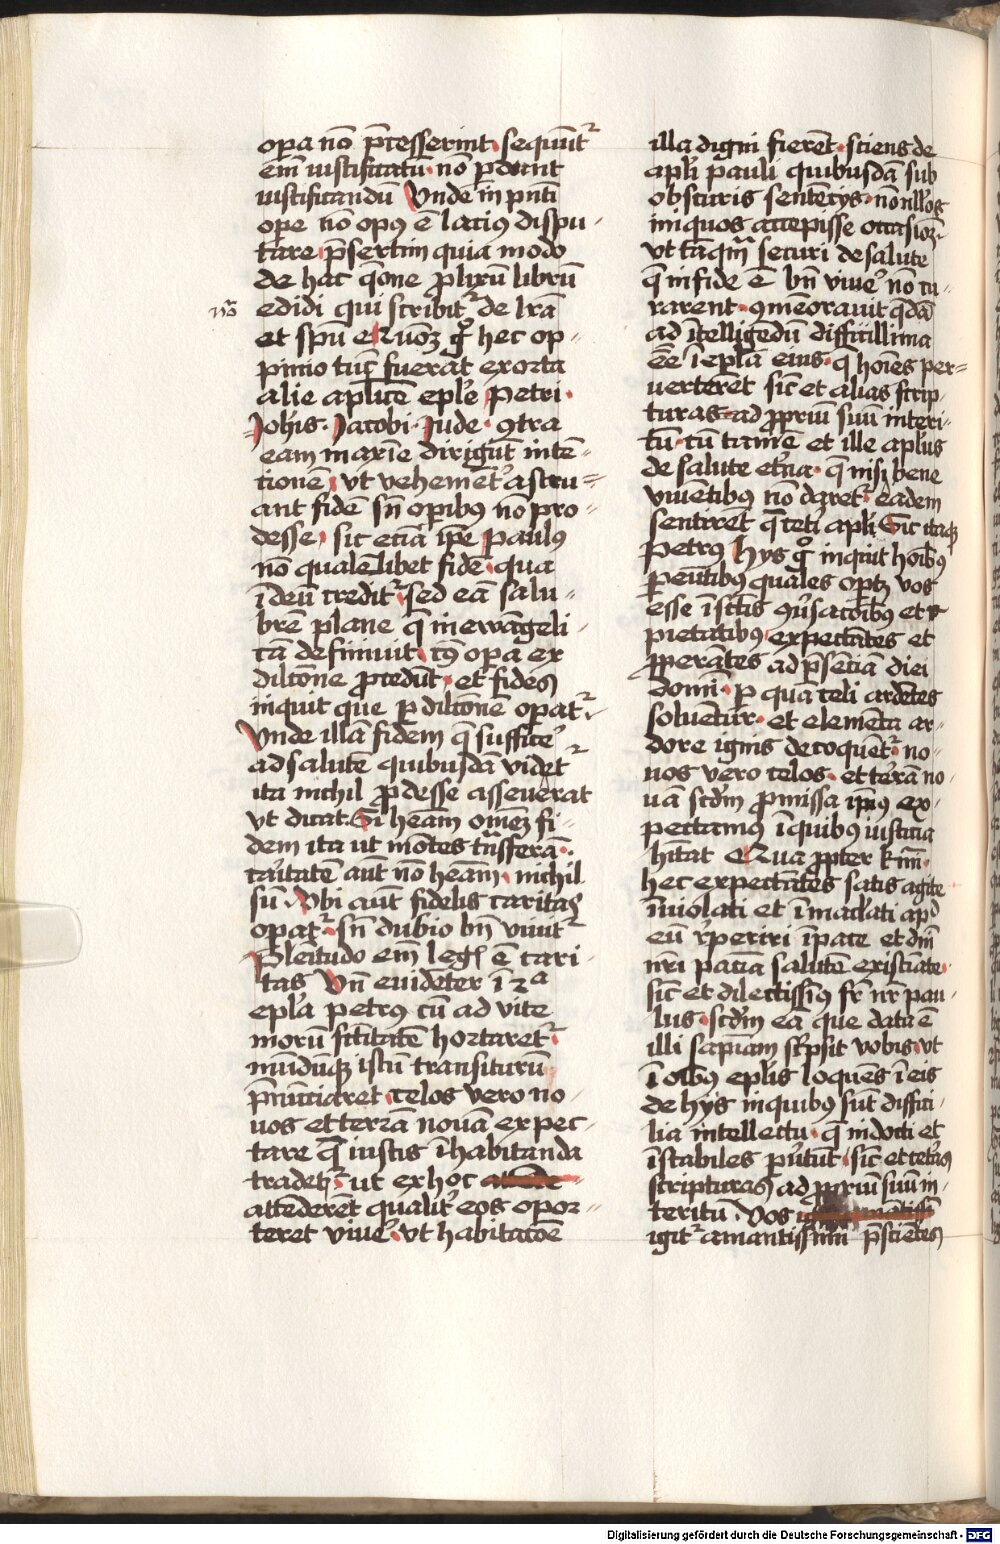 opa nō p̄cesserint sequūt᷑
em̄ iustificatū· nō p̲cedunt
iustificandū Vnde in p̄nti
ope nō opꝰ ē lacius dispu
tare p̄sertim quia modo
de hac q̄one plixū librū
edidi qui scribit᷑ de lr̄a
et spū Quoꝫ g̊ hec op
pinio tūc fuerat exorta
alie aplice eple Petri·
Johis· Jacobi· Jude· ꝯtra
eam maxīe dirigūt inte
tionē ut vehemēt astru
ant fidem sn̄ opibus nō pro
desse· sic eciā ipe paulus
nō qualēlibet fidē· qua
ī deū credit᷑· sed eā salu
brē plane q̄ in ewāgeli
cā definiuit· cꝰ opa ex
dilcōne procedūt· et fides
inquit que p̲ dilcōne operat᷑
Vnde illā fidem q̄ sufficē
ad salutē quibusdā videt᷑
ita nichil ꝓdesse asseuerat
vt dicat Si heām omēꝫ fi
dem ita ut mōtes trāsferā·
caritatē aut nō heām· nichil
sū· Vbi aūt fidelis caritas
operat᷑ sn̄ dubio bn̄ viuit᷑
Plēitudo em̄ legꝭ ē cari
tas Vn̄ euidēter ī 2ᵃ
epla petrꝰ cū ad vite
morū sc̄titatē hortaret᷑
mūdūqꝫ istū transiturū
p̄nūciaret· celos vero no
uos et terrā nouā expec
tare q̄ iustis īhabitanda
tradet᷑ ut ex hoc
attēderēt qualit᷑ eos opor
teret viuē· vt habitacōe
illa digni fierēt· sciens de
apli pauli quibusdā sub
obscuris sentēcijs· nōnullos
iniquos accepisse occasionē
vt tāqm̄ securi de salute
q̄ in fide ē bn̄ viuē nō cu
rarent· ꝯmēorauit q̄dā
ad ītelligēdū difficillima
eē ī epla eius· q̄ hoīes per
uerterēt sic et alias scrip
turas· ad ꝓpriū suū interi
tū· cū tamē et ille aplus
de salute et᷑na· q̄ nisi bene
viuētibus nō daret᷑· eadem
sentiret q̄ ceti apli Sic itaqꝫ
Petrꝰ Hijs g̊ inquit hoibꝰ
peūtibꝰ quales optꝫ vos
esse ī sc̄tis ꝯūsacōibꝰ et
pietatibꝰ expectātes et
ꝓperātes ad p̄senciā diei
domi· p̲ quā celi ardētes
soluētur· et elementa ar
dore ignis decoquēt᷑· no
uos vero celos· et terā no
uā scdm ꝓmissa ipius ex
pectamꝰ ī quibꝰ iusticia
hītat Qua ꝓpter kmī·
hec expectātes satis agite
īuiolati et īmaclati apᵈ
eū rep̲iri ī pace et dn̄i
nr̄i paciā salutē existīate·
sic et dilectissimꝰ fr̄ nr̄ pau
lus· scdm eā que data ē
illi sapiām scripsit vobis· vt
ī oibꝰ eplis loquēs ī eis
de hijs in quibꝰ sūt diffici
lia intellectu· q̄ indocti et
īstabiles p̲ūtūt sic et ceteras
scripturas ad ꝓpriū suū in
teritū· Vos
igit᷑ amantissimi p̄scientes